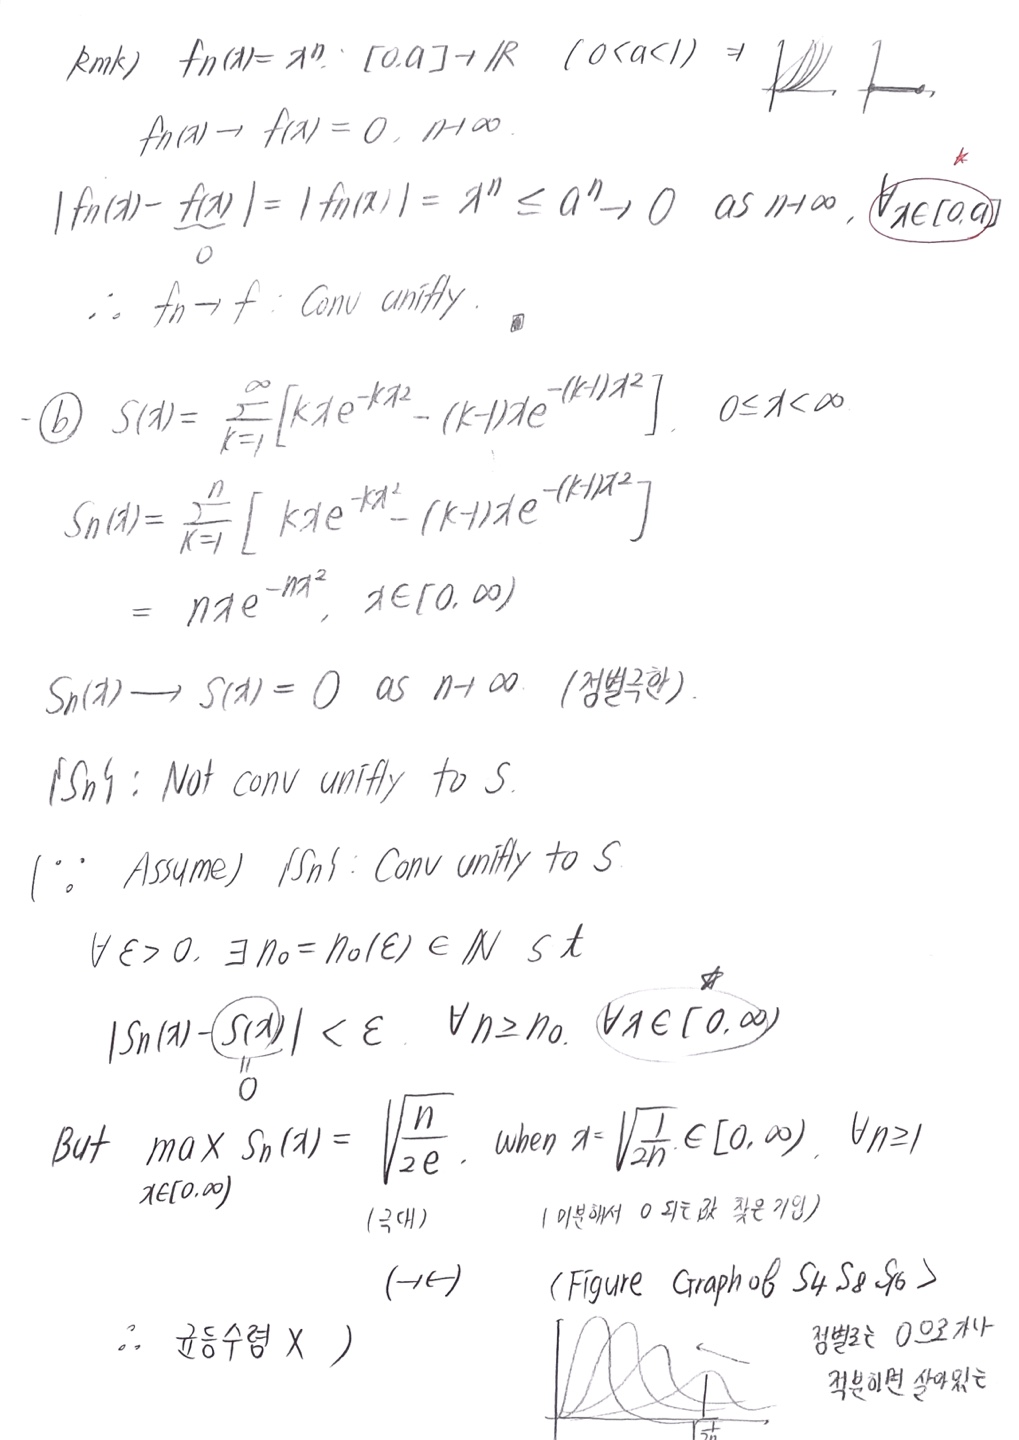 Rmk) fn(x) = xⁿ : [0,a] → ℝ (0<a<1) ⇒
fn(x) → f(x) = 0, n→∞.
|fn(x) - f(x)| = |fn(x)| = xⁿ ≤ aⁿ → 0 as n→∞, ∀x∈[0,a]
0
∴ fn → f : Conv unifly.
- ⓑ S(x) = ∑_{k=1}^{∞} [kxe^{-kx²} - (k-1)xe^{-(k-1)x²}], 0≤x<∞
Sn(x) = ∑_{k=1}^{n} [kxe^{-kx²} - (k-1)xe^{-(k-1)x²}]
= nxe^{-nx²}, x∈[0,∞)
Sn(x) → S(x) = 0 as n→∞ (점별극한).
{Sn} : Not conv unifly to S.
(∵ Assume) {Sn} : Conv unifly to S
∀ε>0, ∃n₀ = n₀(ε) ∈ ℕ s t
|Sn(x) - S(x)| < ε ∀n≥n₀, ∀x∈[0,∞)
0
But max_{x∈[0,∞)} Sn(x) = √(n/2e), when x = √(1/2n) ∈ [0,∞), ∀n≥1
(극대) (미분해서 0 되는 값 찾은 거임)
(→←) (Figure Graph of S4 S8 S16 >
∴ 균등수렴 X )
점별로는 0으로 가나
적분하면 살아있는
√(1/2n)